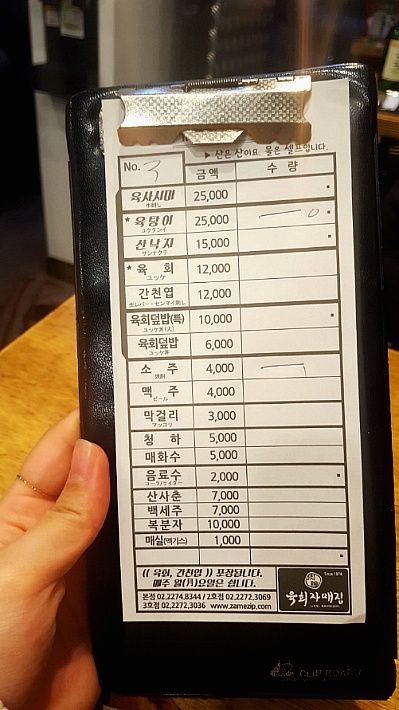 ▶ 산은 산이요. 물은 셀프입니다.
No. 3 금액 수 량
육사시미 25,000
* 육탕이 25,000
ユクタンイ
산낙지 15,000
サンナクチ
* 육 회 12,000
ユッケ
간천엽 12,000
生レバー・センマイ刺し
육회덮밥(특) 10,000
ユッケ丼(大)
육회덮밥 6,000
ユッケ丼
소 주 4,000
焼酎
맥 주 4,000
ビール
막걸리 3,000
マッコリ
청 하 5,000
매화수 5,000
음료수 2,000
コーラ/サイダー
산사춘 7,000
백세주 7,000
복분자 10,000
매실(엑기스) 1,000
(( 육회, 간천엽 )) 포장됩니다.
매주 월(月)요일은 쉽니다.
본점 02.2274.8344 / 2호점 02.2272.3069
3호점 02.2272.3036 www.zamezip.com
Since 1974
육회자매집
CLIP BOARD